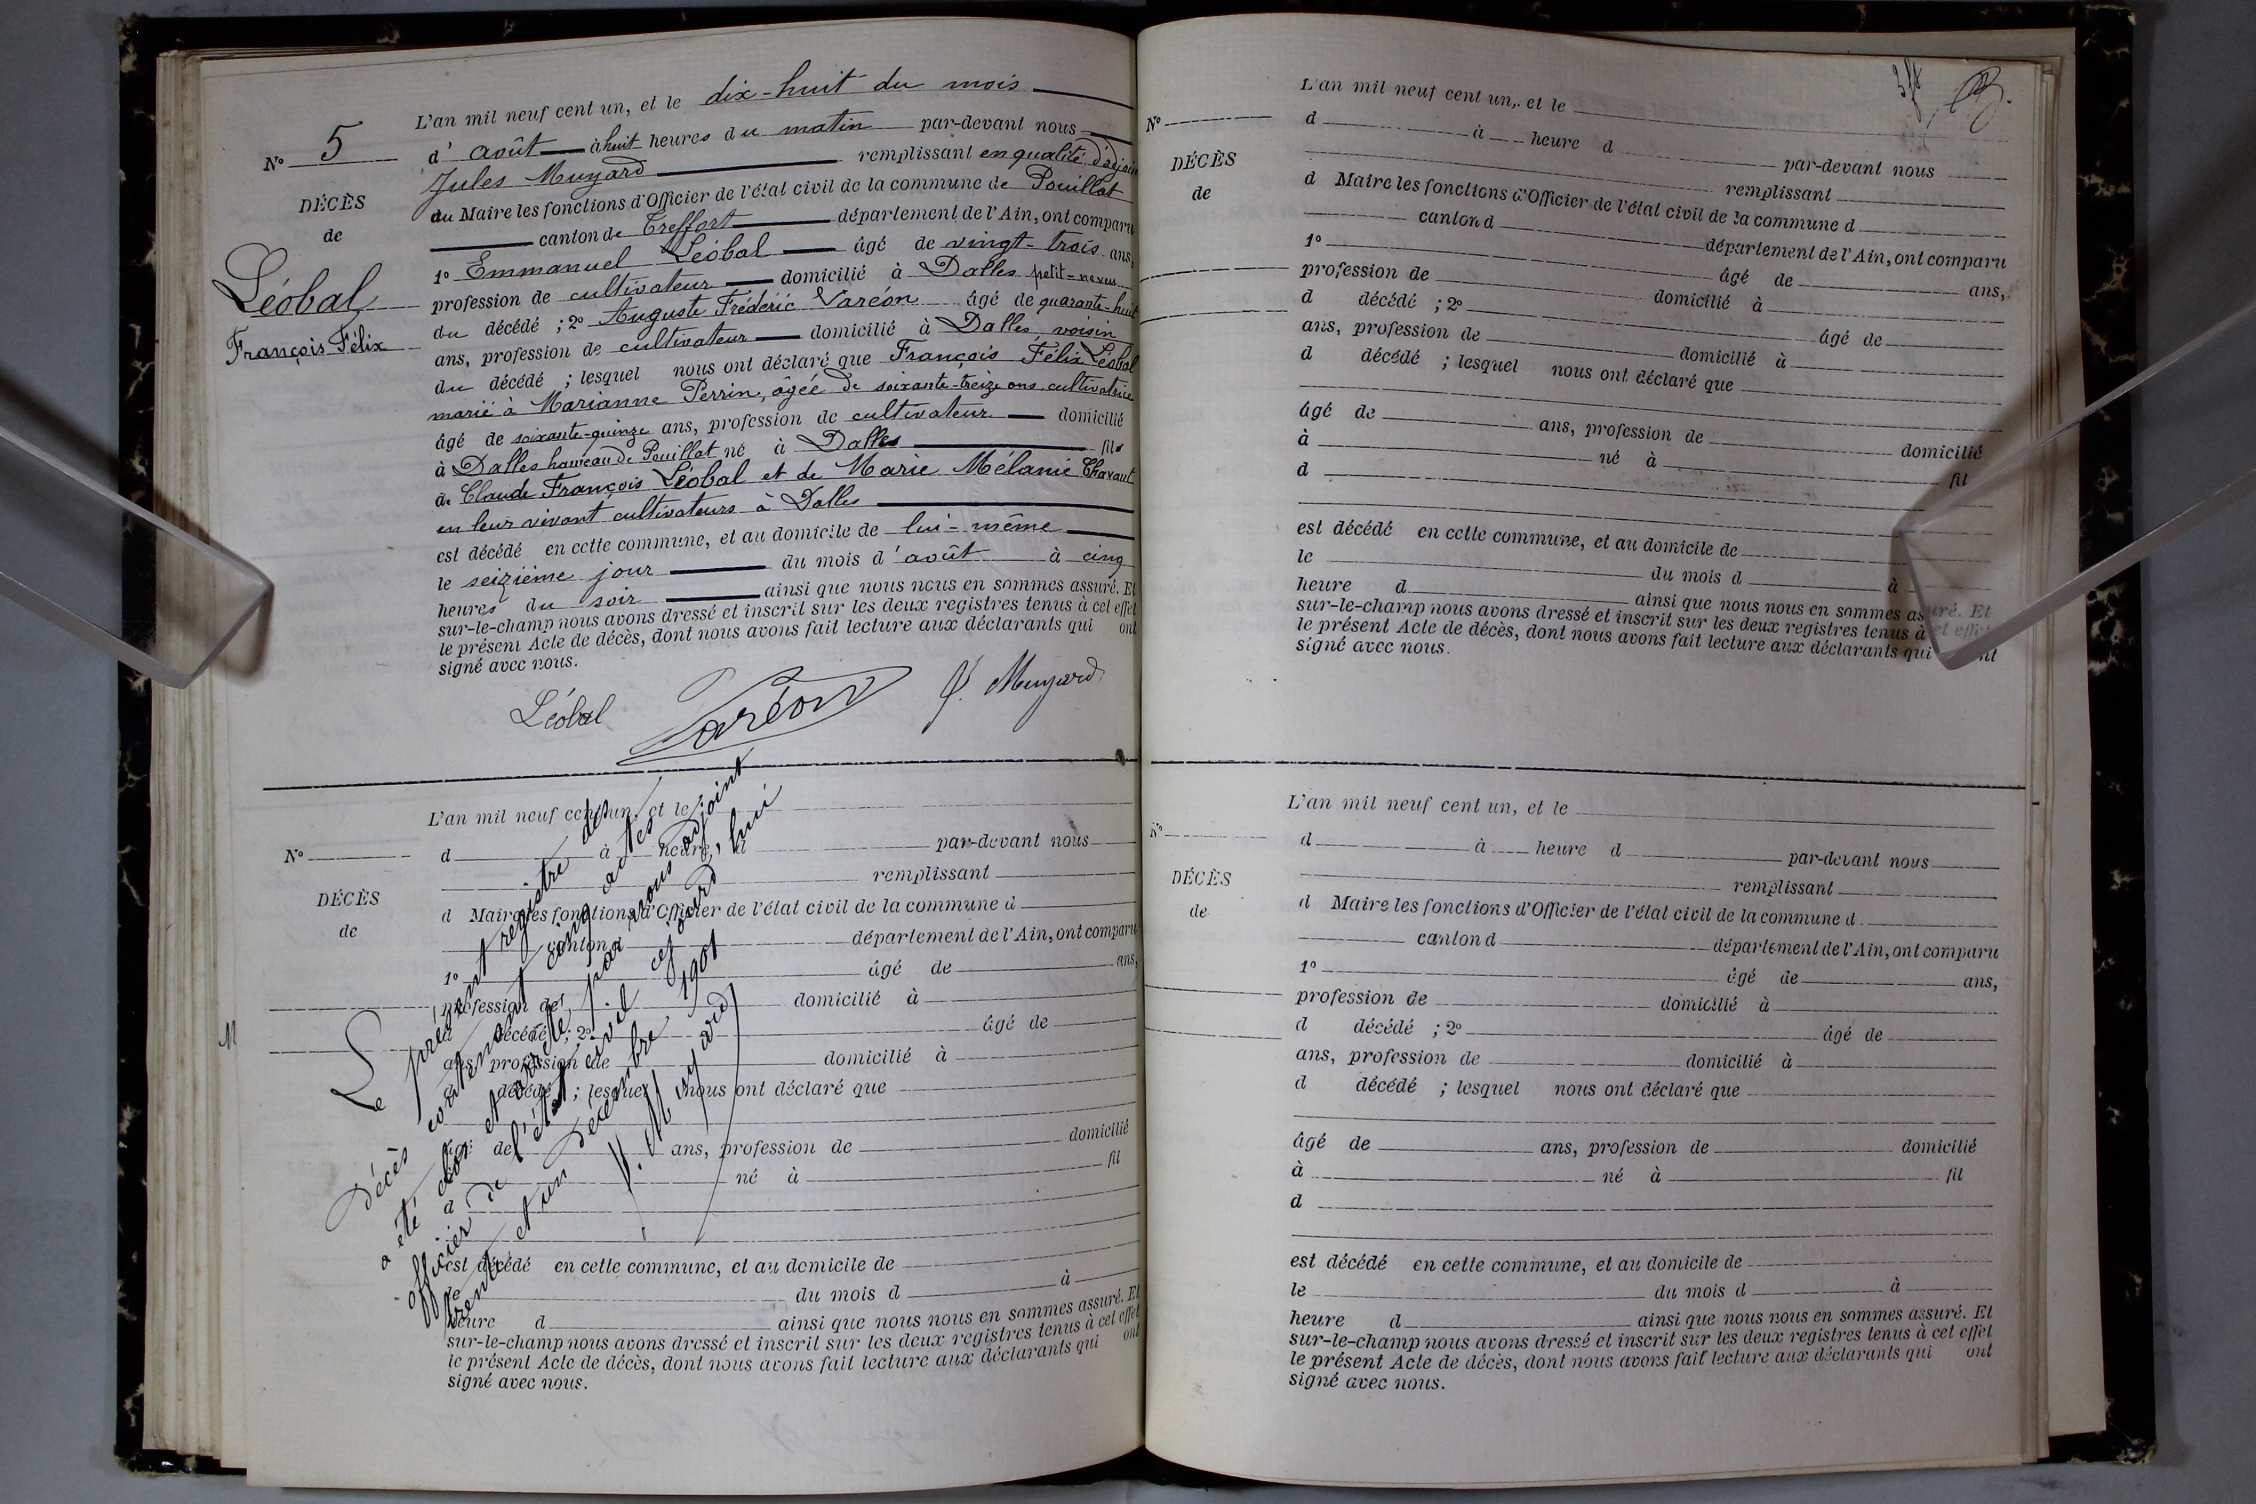 L'an mil neuf cent un, et le dix-huit du mois
N° 5
d'août à huit heures du matin par-devant nous
Jules Muyard remplissant en qualité d'adjoint
DÉCÈS
du Maire les fonctions d'Officier de l'état civil de la commune de Pouillat
de
canton de Treffort département de l'Ain, ont comparu
1° Emmanuel Léobal âgé de vingt-trois ans,
Léobal
profession de cultivateur domicilié à Dalles petit-neveu
François Félix
du décédé ; 2° Auguste Frédéric Varéon âgé de quarante-huit
ans, profession de cultivateur domicilié à Dalles voisin
du décédé ; lesquel nous ont déclaré que François Félix Léobal
marié à Marianne Perrin, âgée de soixante-treize ans cultivatrice
âgé de soixante-quinze ans, profession de cultivateur domicilié
à Dalles hameau de Pouillat né à Dalles fils
de Claude François Léobal et de Marie Mélanie Chavant
en leur vivant cultivateurs à Dalles
est décédé en cette commune, et au domicile de lui-même
le seizième jour du mois d'août à cinq
heures du soir ainsi que nous nous en sommes assuré. Et
sur-le-champ nous avons dressé et inscrit sur les deux registres tenus à cet effet
le présent Acte de décès, dont nous avons fait lecture aux déclarants qui ont
signé avec nous.
Léobal Varéon J. Muyard
L'an mil neuf cent un, et le
N°
d à heure d par-devant nous
remplissant
DÉCÈS
d Maire les fonctions d'Officier de l'état civil de la commune d
de
canton d département de l'Ain, ont comparu
1° âgé de ans,
profession de domicilié à
d décédé ; 2° âgé de
ans, profession de domicilié à
d décédé ; lesquel nous ont déclaré que
âgé de ans, profession de domicilié
à né à fil
d
est décédé en cette commune, et au domicile de
le du mois d à
heure d ainsi que nous nous en sommes assuré. Et
sur-le-champ nous avons dressé et inscrit sur les deux registres tenus à cet effet
le présent Acte de décès, dont nous avons fait lecture aux déclarants qui ont
signé avec nous.
Le présent registre des
Décès contenant cinq actes
a été clos et arrêté, par nous adjoint
officier de l'état civil ce jourd'hui
trente et un Décembre 1901
J. Muyard
M
L'an mil neuf cent un, et le
N°
d à heure d par-devant nous
remplissant
DÉCÈS
d Maire les fonctions d'Officier de l'état civil de la commune d
de
canton d département de l'Ain, ont comparu
1° âgé de ans,
profession de domicilié à
d décédé ; 2° âgé de
ans, profession de domicilié à
d décédé ; lesquel nous ont déclaré que
âgé de ans, profession de domicilié
à né à fil
d
est décédé en cette commune, et au domicile de
le du mois d à
heure d ainsi que nous nous en sommes assuré. Et
sur-le-champ nous avons dressé et inscrit sur les deux registres tenus à cet effet
le présent Acte de décès, dont nous avons fait lecture aux déclarants qui ont
signé avec nous.
L'an mil neuf cent un, et le
N°
d à heure d par-devant nous
remplissant
DÉCÈS
d Maire les fonctions d'Officier de l'état civil de la commune d
de
canton d département de l'Ain, ont comparu
1° âgé de ans,
profession de domicilié à
d décédé ; 2° âgé de
ans, profession de domicilié à
d décédé ; lesquel nous ont déclaré que
âgé de ans, profession de domicilié
à né à fil
d
est décédé en cette commune, et au domicile de
le du mois d à
heure d ainsi que nous nous en sommes assuré. Et
sur-le-champ nous avons dressé et inscrit sur les deux registres tenus à cet effet
le présent Acte de décès, dont nous avons fait lecture aux déclarants qui ont
signé avec nous.